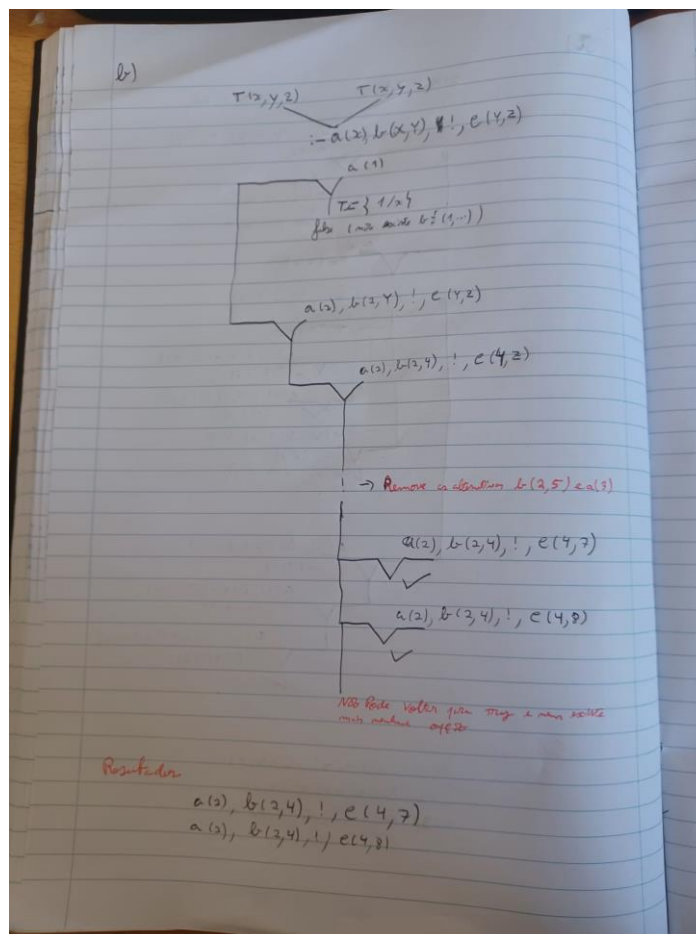 b)
T(x,y,z) T(x,y,z)
:- a(x), b(x,y), !, c(y,z)
a(1)
{1/x}
(não existe b(1,...))
a(2), b(2,Y), !, c(Y,Z)
a(2), b(2,4), !, c(4,Z)
! → Remove as b(2,5) e a(3)
a(2), b(2,4), !, c(4,7)
a(2), b(2,4), !, c(4,8)
Não Pode Voltar para traz e não existe
mais nenhuma opção
Resultados
a(2), b(2,4), !, c(4,7)
a(2), b(2,4), !, c(4,8)